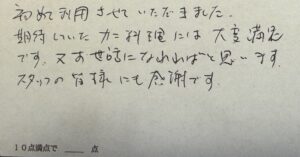 初めて利用させていただきました。
期待していたカニ料理には大変満足
です。又お世話になれればと思います。
スタッフの皆様にも感謝です。
10点満点で ____ 点